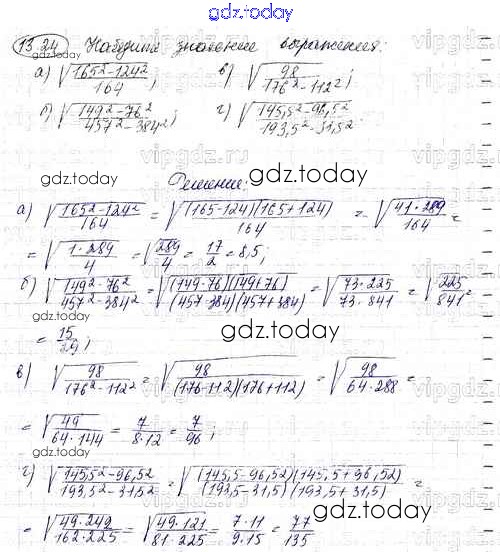 gdz.today
13.24 Найдите значение выражения:
а) √(165²-124²/164); в) √(98/176²-112²);
б) √(149²-76²/457²-384²); г) √(145,5²-96,5²/193,5²-31,5²)
gdz.today
Решение:
а) √(165²-124²/164) = √((165-124)(165+124)/164) = √(41·289/164) =
= √(1·289/4) = √(289/4) = 17/2 = 8,5;
б) √(149²-76²/457²-384²) = √((149-76)(149+76)/(457-384)(457+384)) = √(73·225/73·841) = √(225/841) =
= 15/29;
gdz.today
в) √(98/176²-112²) = √(98/(176-112)(176+112)) = √(98/64·288) =
= √(49/64·144) = 7/8·12 = 7/96;
г) √(145,5²-96,52/193,5²-31,5²) = √((145,5-96,52)(145,5+96,52)/(193,5-31,5)(193,5+31,5)) =
= √(49·242/162·225) = √(49·121/81·225) = 7·11/9·15 = 77/135
gdz.today